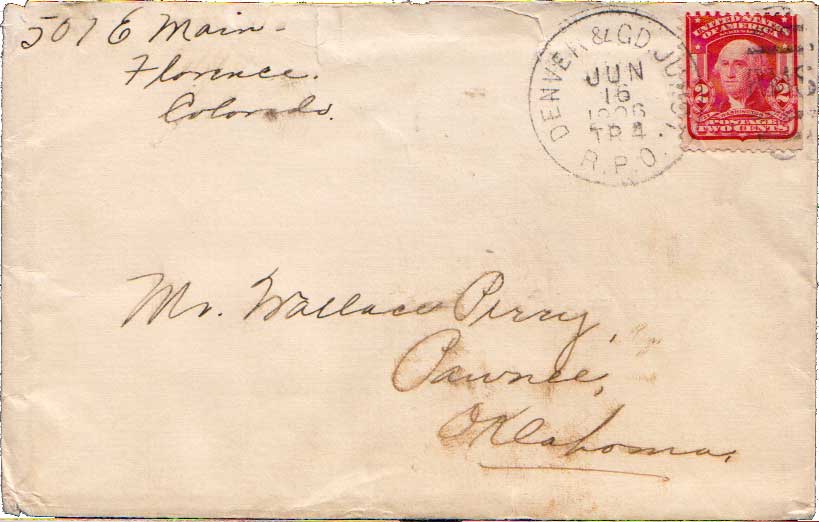 501 E Main-
Florence.
Colorado.
DENVER & GD. JUNC.
JUN
16
1906
TR 4
R.P.O.
UNITED STATES
OF AMERICA
2 2
WASHINGTON
POSTAGE
TWO CENTS
Mr. Wallace Percy,
Pawnee,
Oklahoma,